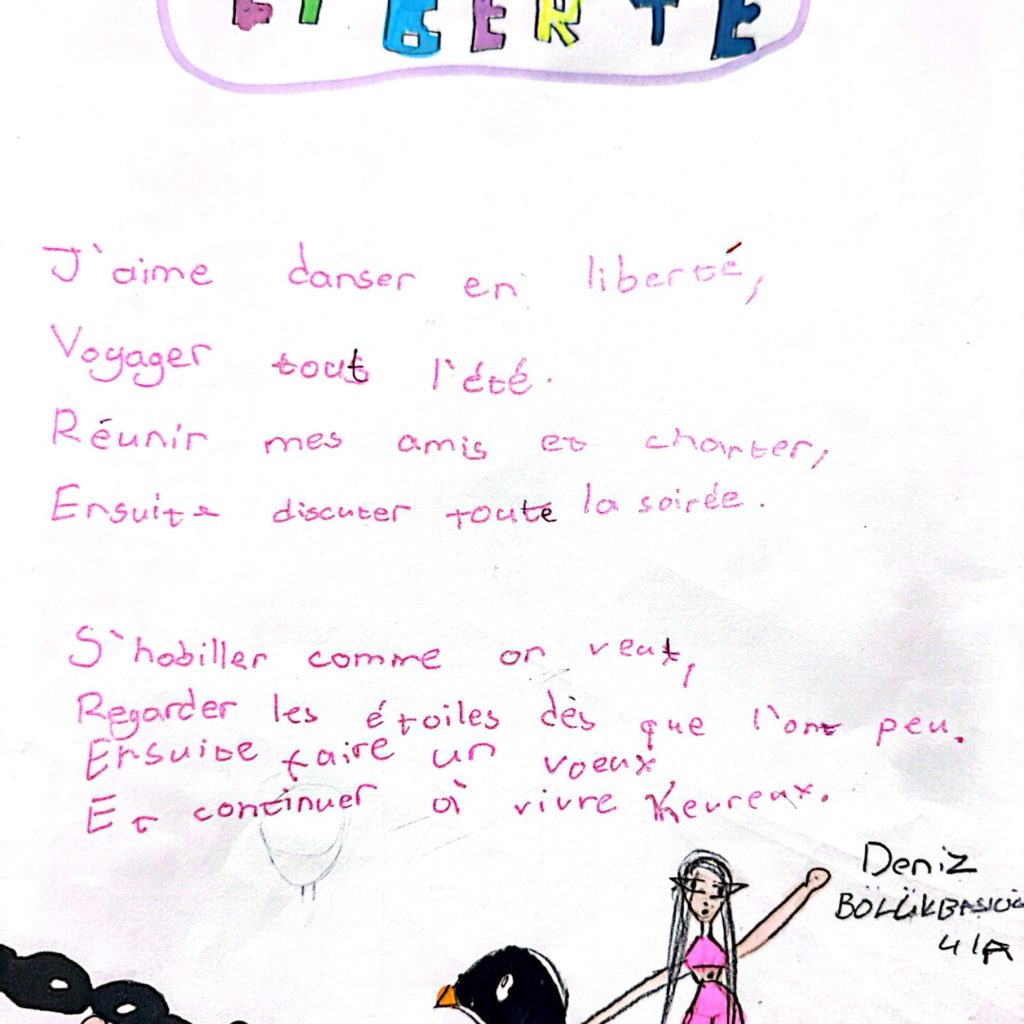 LIBERTÉ
J'aime danser en liberté,
Voyager tout l'été.
Réunir mes amis et chanter,
Ensuite discuter toute la soirée.
S'habiller comme on veut,
Regarder les étoiles dès que l'ont peu.
Ensuite faire un voeux
Et continuer à vivre heureux.
Deniz
4/A